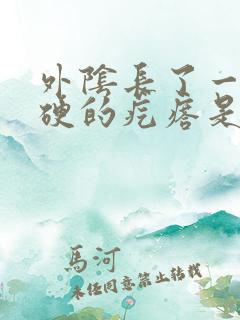 外陰長了一
硬的疙瘩是
馬河
未經同意禁止轉載